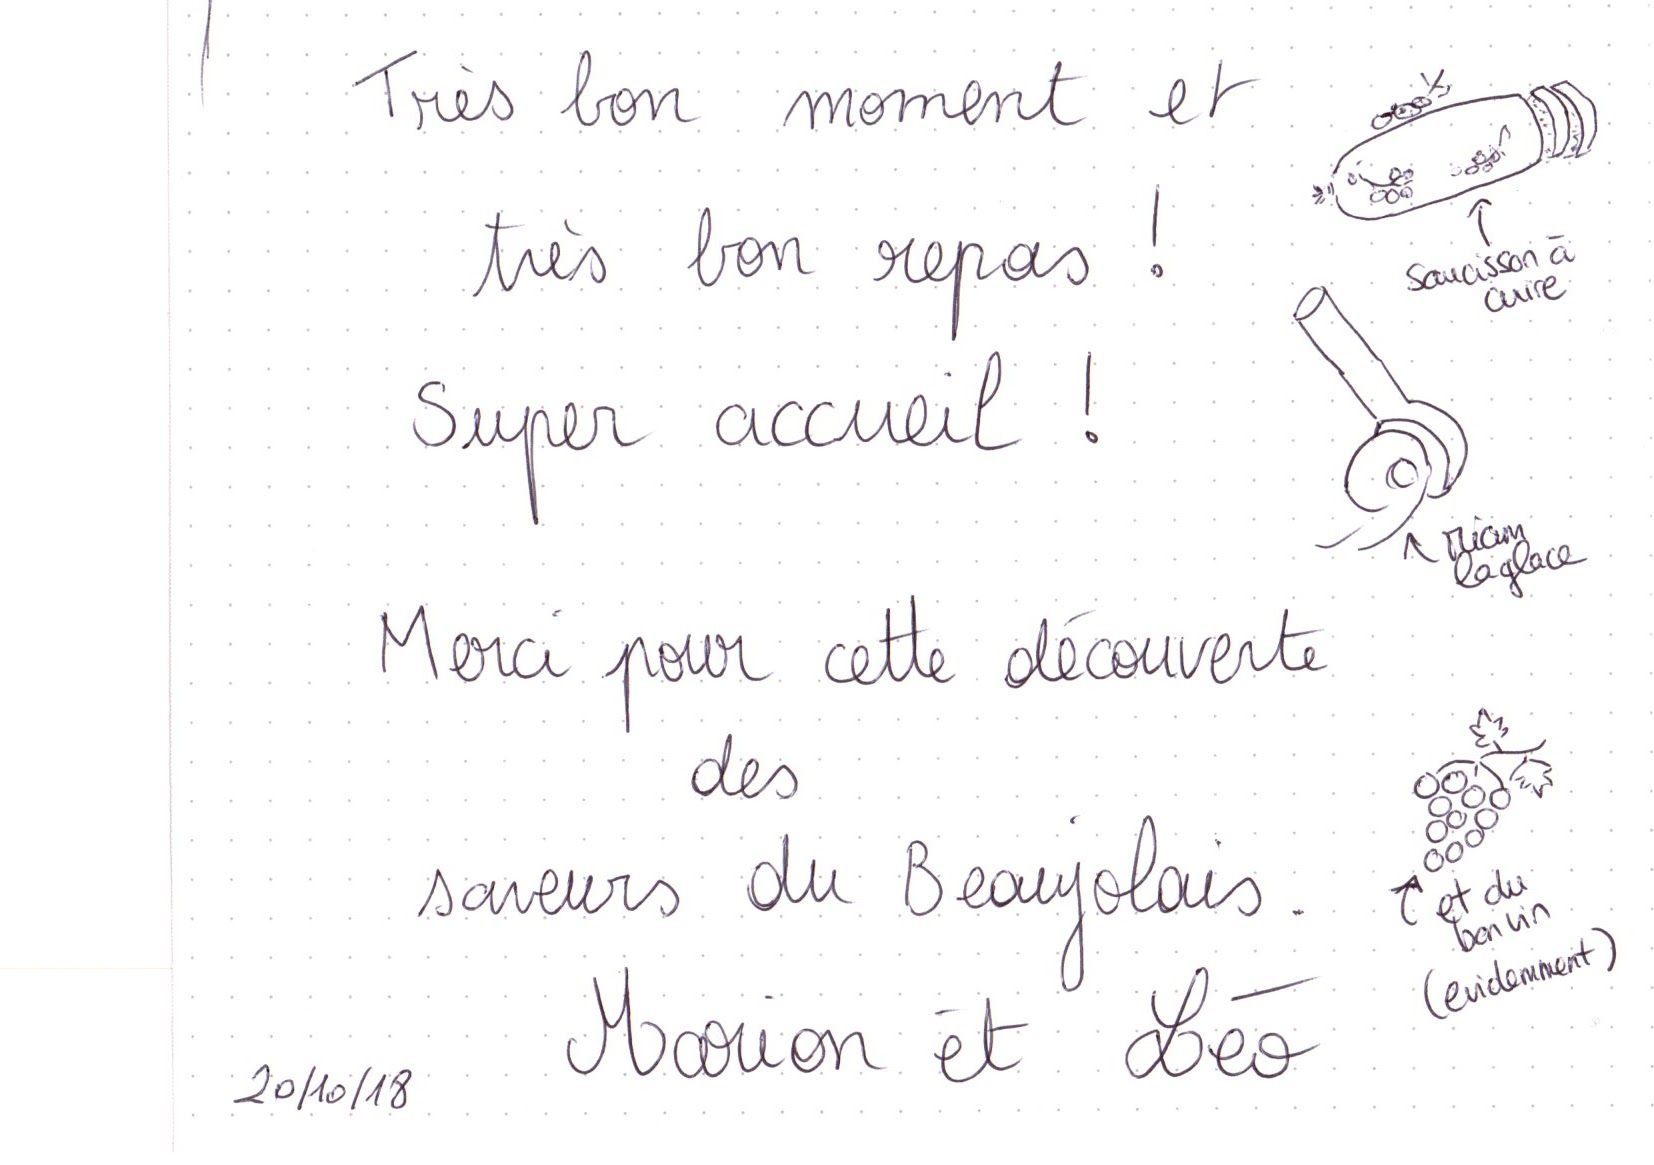 Très bon moment et
très bon repas !
Super accueil !
Merci pour cette découverte
des
saveurs du Beaujolais.
Marion et Léo
20/10/18
Saucisson à
cuire
Miam
la glace
et du
bon vin
(evidemment)